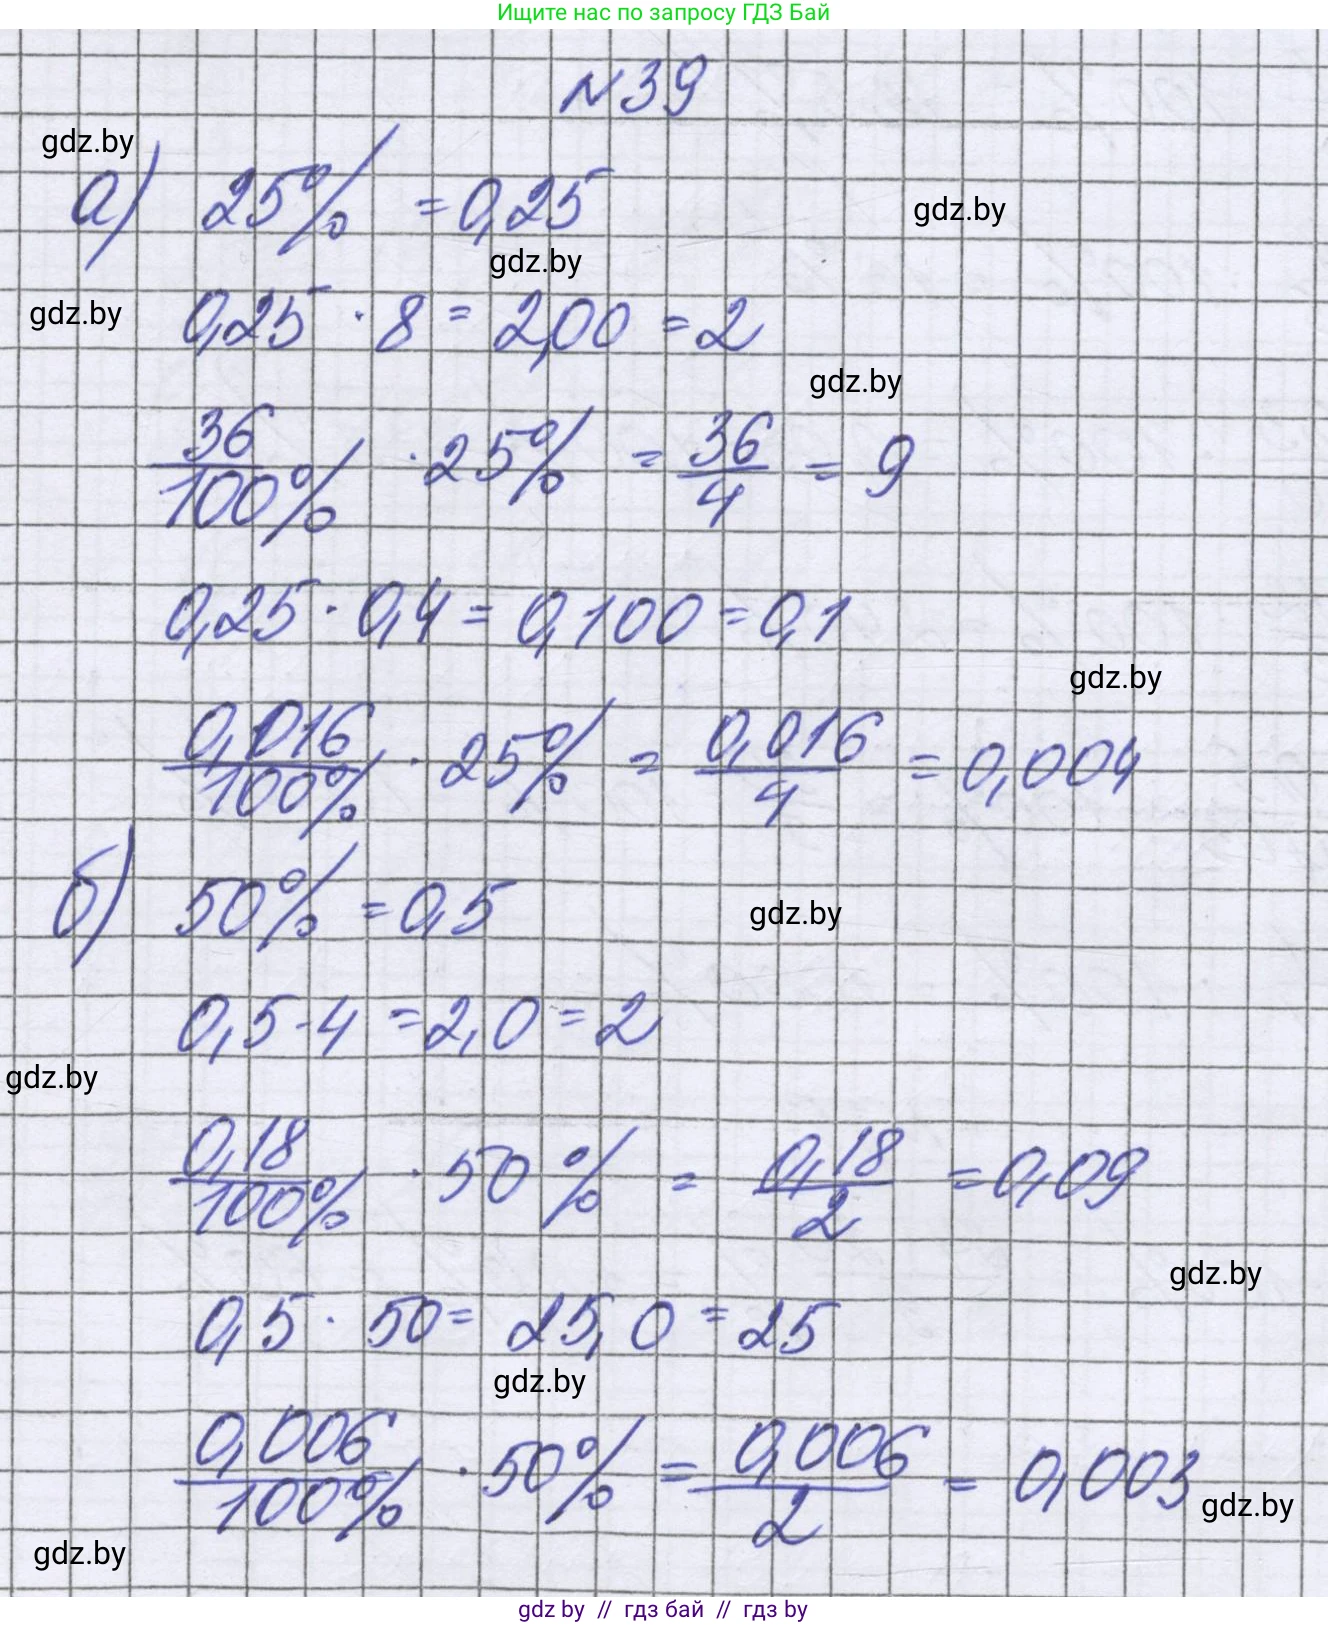 Ищите нас по запросу ГДЗ Бай
№39
gdz.by
а) 25% = 0,25
gdz.by
gdz.by
gdz.by
0,25 · 8 = 2,00 = 2
gdz.by
36/100% · 25% = 36/4 = 9
0,25 · 0,4 = 0,100 = 0,1
gdz.by
0,016/100% · 25% = 0,016/4 = 0,004
б) 50% = 0,5
gdz.by
0,5 · 4 = 2,0 = 2
gdz.by
0,18/100% · 50% = 0,18/2 = 0,09
gdz.by
0,5 · 50 = 25,0 = 25
gdz.by
0,006/100% · 50% = 0,006/2 = 0,003
gdz.by
gdz.by
gdz by // гдз бай // гдз by